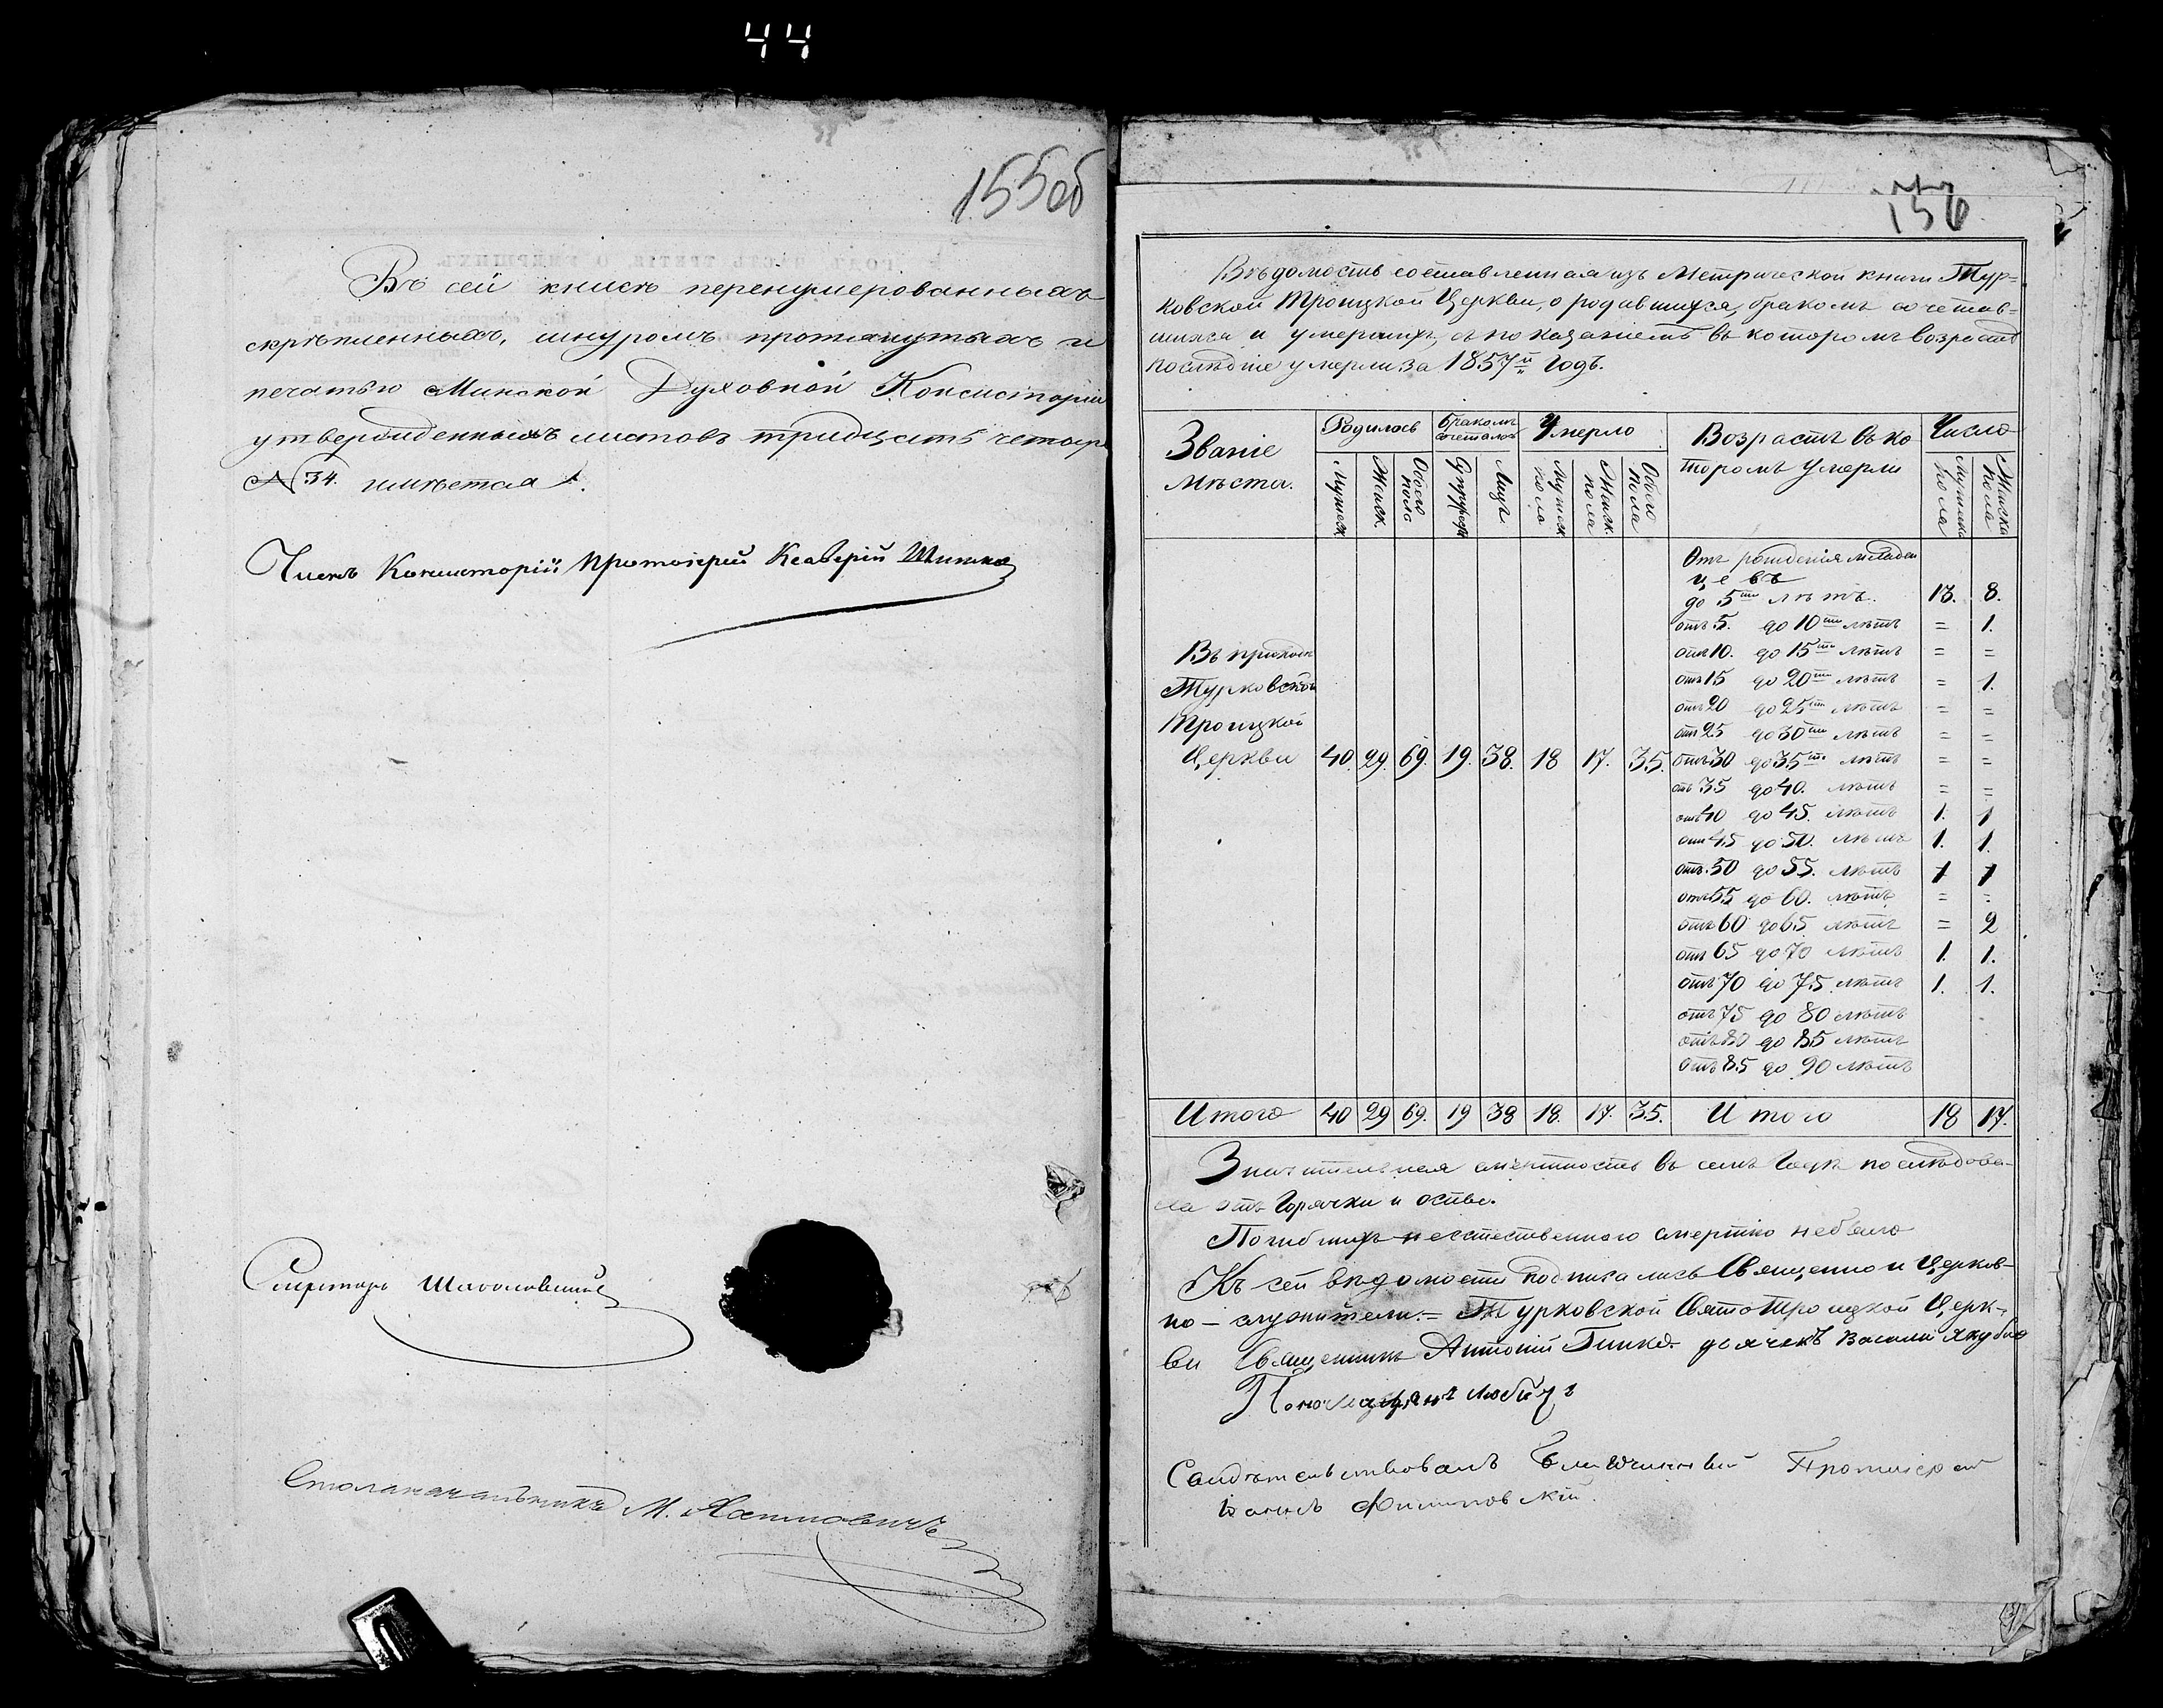 44
155об
Въ сей книгѣ перенумерованныхъ
скрѣпленныхъ, шнуромъ протянутыхъ и
печатью Минской Духовной Консисторіи
утвержденныхъ листовъ тридцать четыре
№ 34. имѣется
Членъ Консисторіи Протоіерей Ксаверій
Секретарь
Столоначальникъ М.
156
Вѣдомость составленная изъ Метрической книги Тур-
ковской Троицкой Церкви, о родившихся, бракомъ сочетав-
шихся и умершихъ, съ показаніемъ въ которомъ возрастѣ
послѣдніе умерли за 1857й годъ.
Званіе мѣста.
Родилось
Бракомъ сочеталось
Умерло
Возрастъ въ ко
торомъ умерли
Число
Мужеск
Женск.
Обоего пола
Супруговъ
Лицъ
Мужеск пола
Женск. пола
Обоего пола
Мужеска пола
Женска пола
Отъ рожденія младен
цевъ
до 5ти лѣтъ. 13. 8.
отъ 5. до 10ти лѣтъ = 1.
отъ 10. до 15ти лѣтъ = =
отъ 15 до 20ти лѣтъ = 1.
отъ 20 до 25ти лѣтъ = =
отъ 25 до 30ти лѣтъ = =
Въ приходѣ
Турковской
Троицкой
Церкви 40. 29. 69. 19. 38. 18 17. 35. отъ 30 до 35ти лѣтъ = =
отъ 35 до 40. лѣтъ = =
отъ 40 до 45. лѣтъ 1. 1
отъ 45 до 50. лѣтъ 1. 1.
отъ 50 до 55. лѣтъ 1 1
отъ 55 до 60. лѣтъ = =
отъ 60 до 65 лѣтъ = 2
отъ 65 до 70 лѣтъ 1. 1.
отъ 70 до 75 лѣтъ 1. 1.
отъ 75 до 80 лѣтъ
отъ 80 до 85 лѣтъ
отъ 85 до 90 лѣтъ
Итого 40 29 69. 19 38 18. 17. 35. Итого 18 17.
Значительная смертность въ семъ годѣ послѣдова-
ла отъ горячки и оспы.
Погибшихъ неестественною смертію небыло
Къ сей вѣдомости подписались Священно и Церков-
но-служители:= Турковской СвятоТроицкой Церк-
ви Священникъ Антоній Гинко. дьячекъ Василій
Свидѣтельствовалъ Благочинный Протоіерей
Іоаннъ Филиповскій.